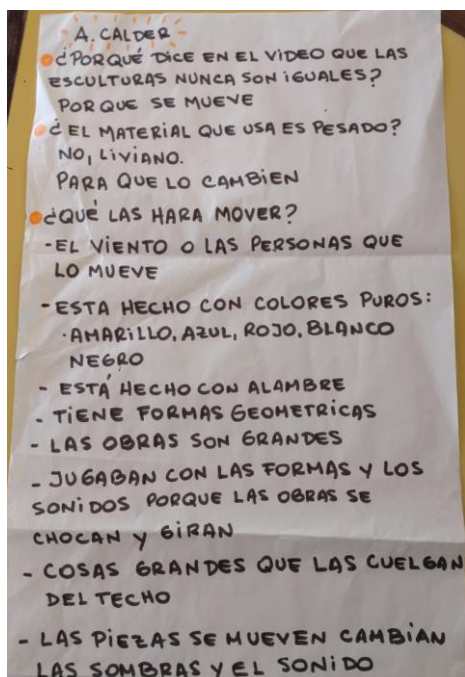 A. CALDER
¿PORQUÉ DICE EN EL VIDEO QUE LAS
ESCULTURAS NUNCA SON IGUALES?
PORQUE SE MUEVE
¿EL MATERIAL QUE USA ES PESADO?
NO, LIVIANO.
PARA QUE LO CAMBIEN
¿QUÉ LAS HARA MOVER?
-EL VIENTO O LAS PERSONAS QUE
LO MUEVE
-ESTA HECHO CON COLORES PUROS:
·AMARILLO, AZUL, ROJO, BLANCO
NEGRO
- ESTÁ HECHO CON ALAMBRE
- TIENE FORMAS GEOMETRICAS
- LAS OBRAS SON GRANDES
- JUGABAN CON LAS FORMAS Y LOS
SONIDOS PORQUE LAS OBRAS SE
CHOCAN Y GIRAN
- COSAS GRANDES QUE LAS CUELGAN
DEL TECHO
- LAS PIEZAS SE MUEVEN CAMBIAN
LAS SOMBRAS Y EL SONIDO